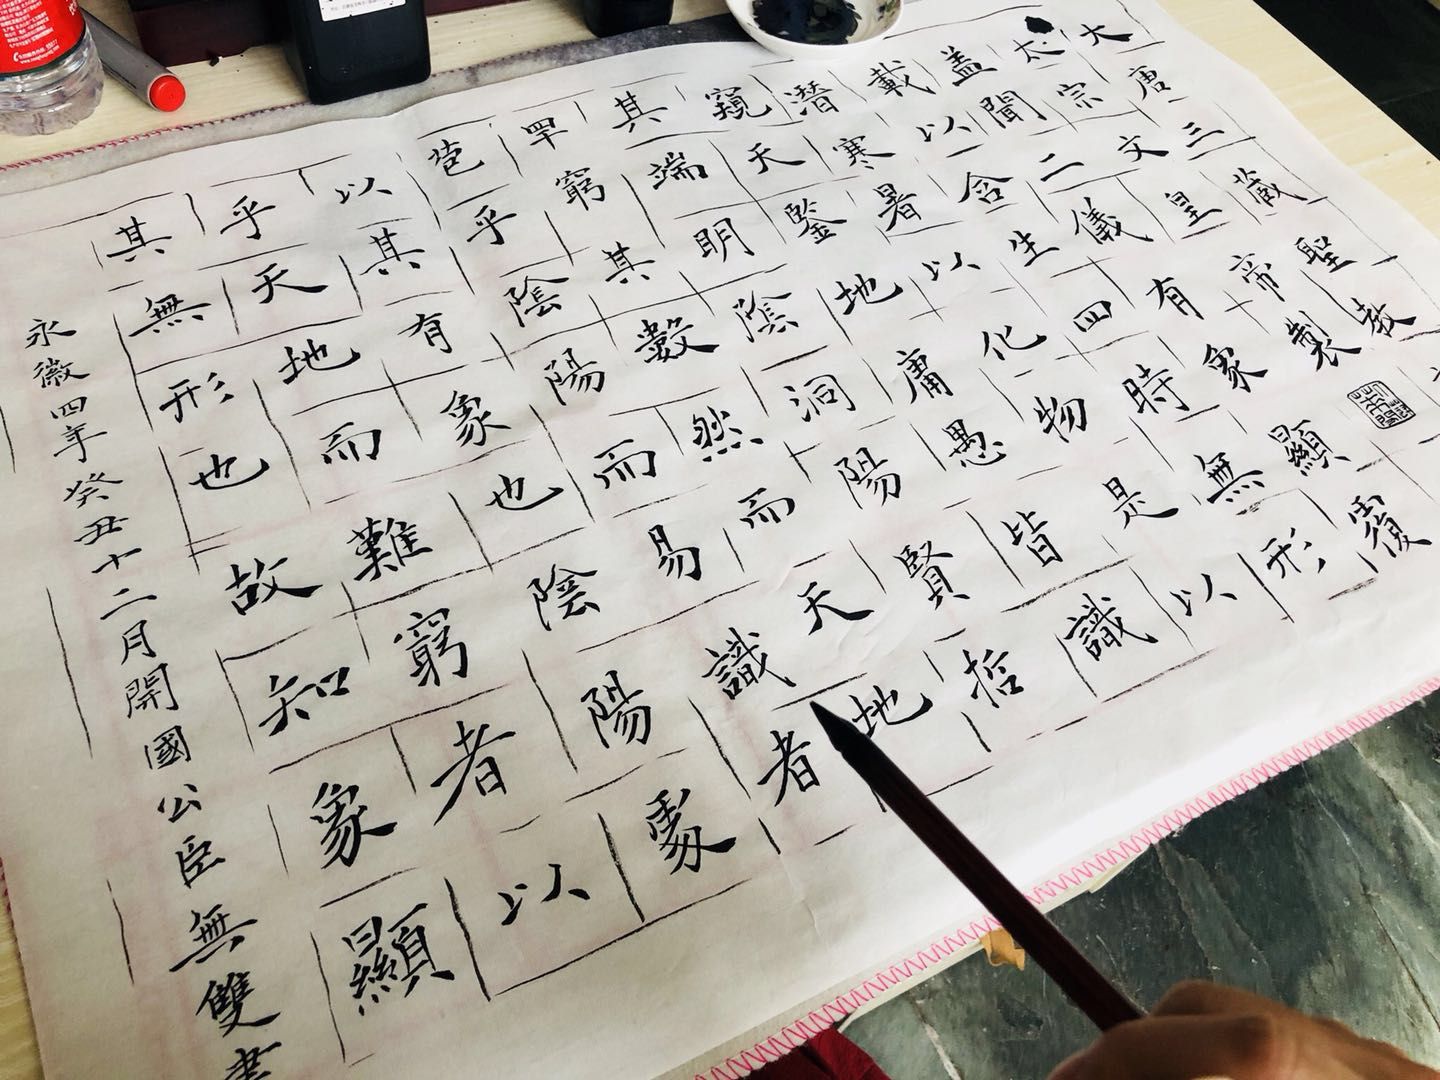 大唐三藏聖教
太宗文皇帝製
蓋聞二儀有象顯覆
載以含生四時無形
潛寒暑以化物是以
窺天鑒地庸愚皆識
其端明陰洞陽賢哲
罕窮其數然而天地
苞乎陰陽而易識者
以其有象也陰陽處
乎天地而難窮者以
其無形也故知象顯
永徽四年癸丑十二月開國公臣無雙書